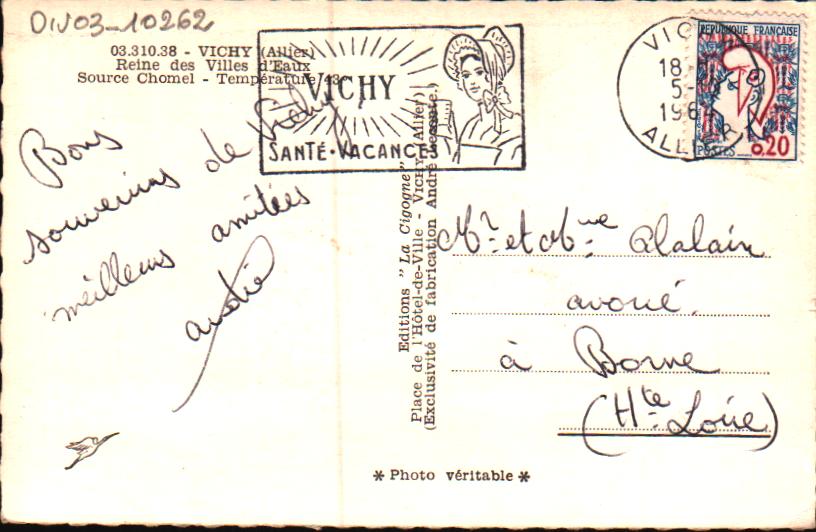 DIV03-10262
03.310.38 - VICHY (Allier)
Reine des Villes d'Eaux
Source Chomel - Température 43°
VICHY
SANTÉ·VACANCES
18
5-
196
ALLIER
REPUBLIQUE FRANÇAISE
POSTES 0.20
Bons
souvenirs de Vichy
meilleures amitiés
Editions "La Cigogne"
Place de l'Hôtel-de-Ville - VICHY (Allier)
(Exclusivité de fabrication André
Mr. et Mme
avoué
à Borne
(Hte Loire)
* Photo véritable *